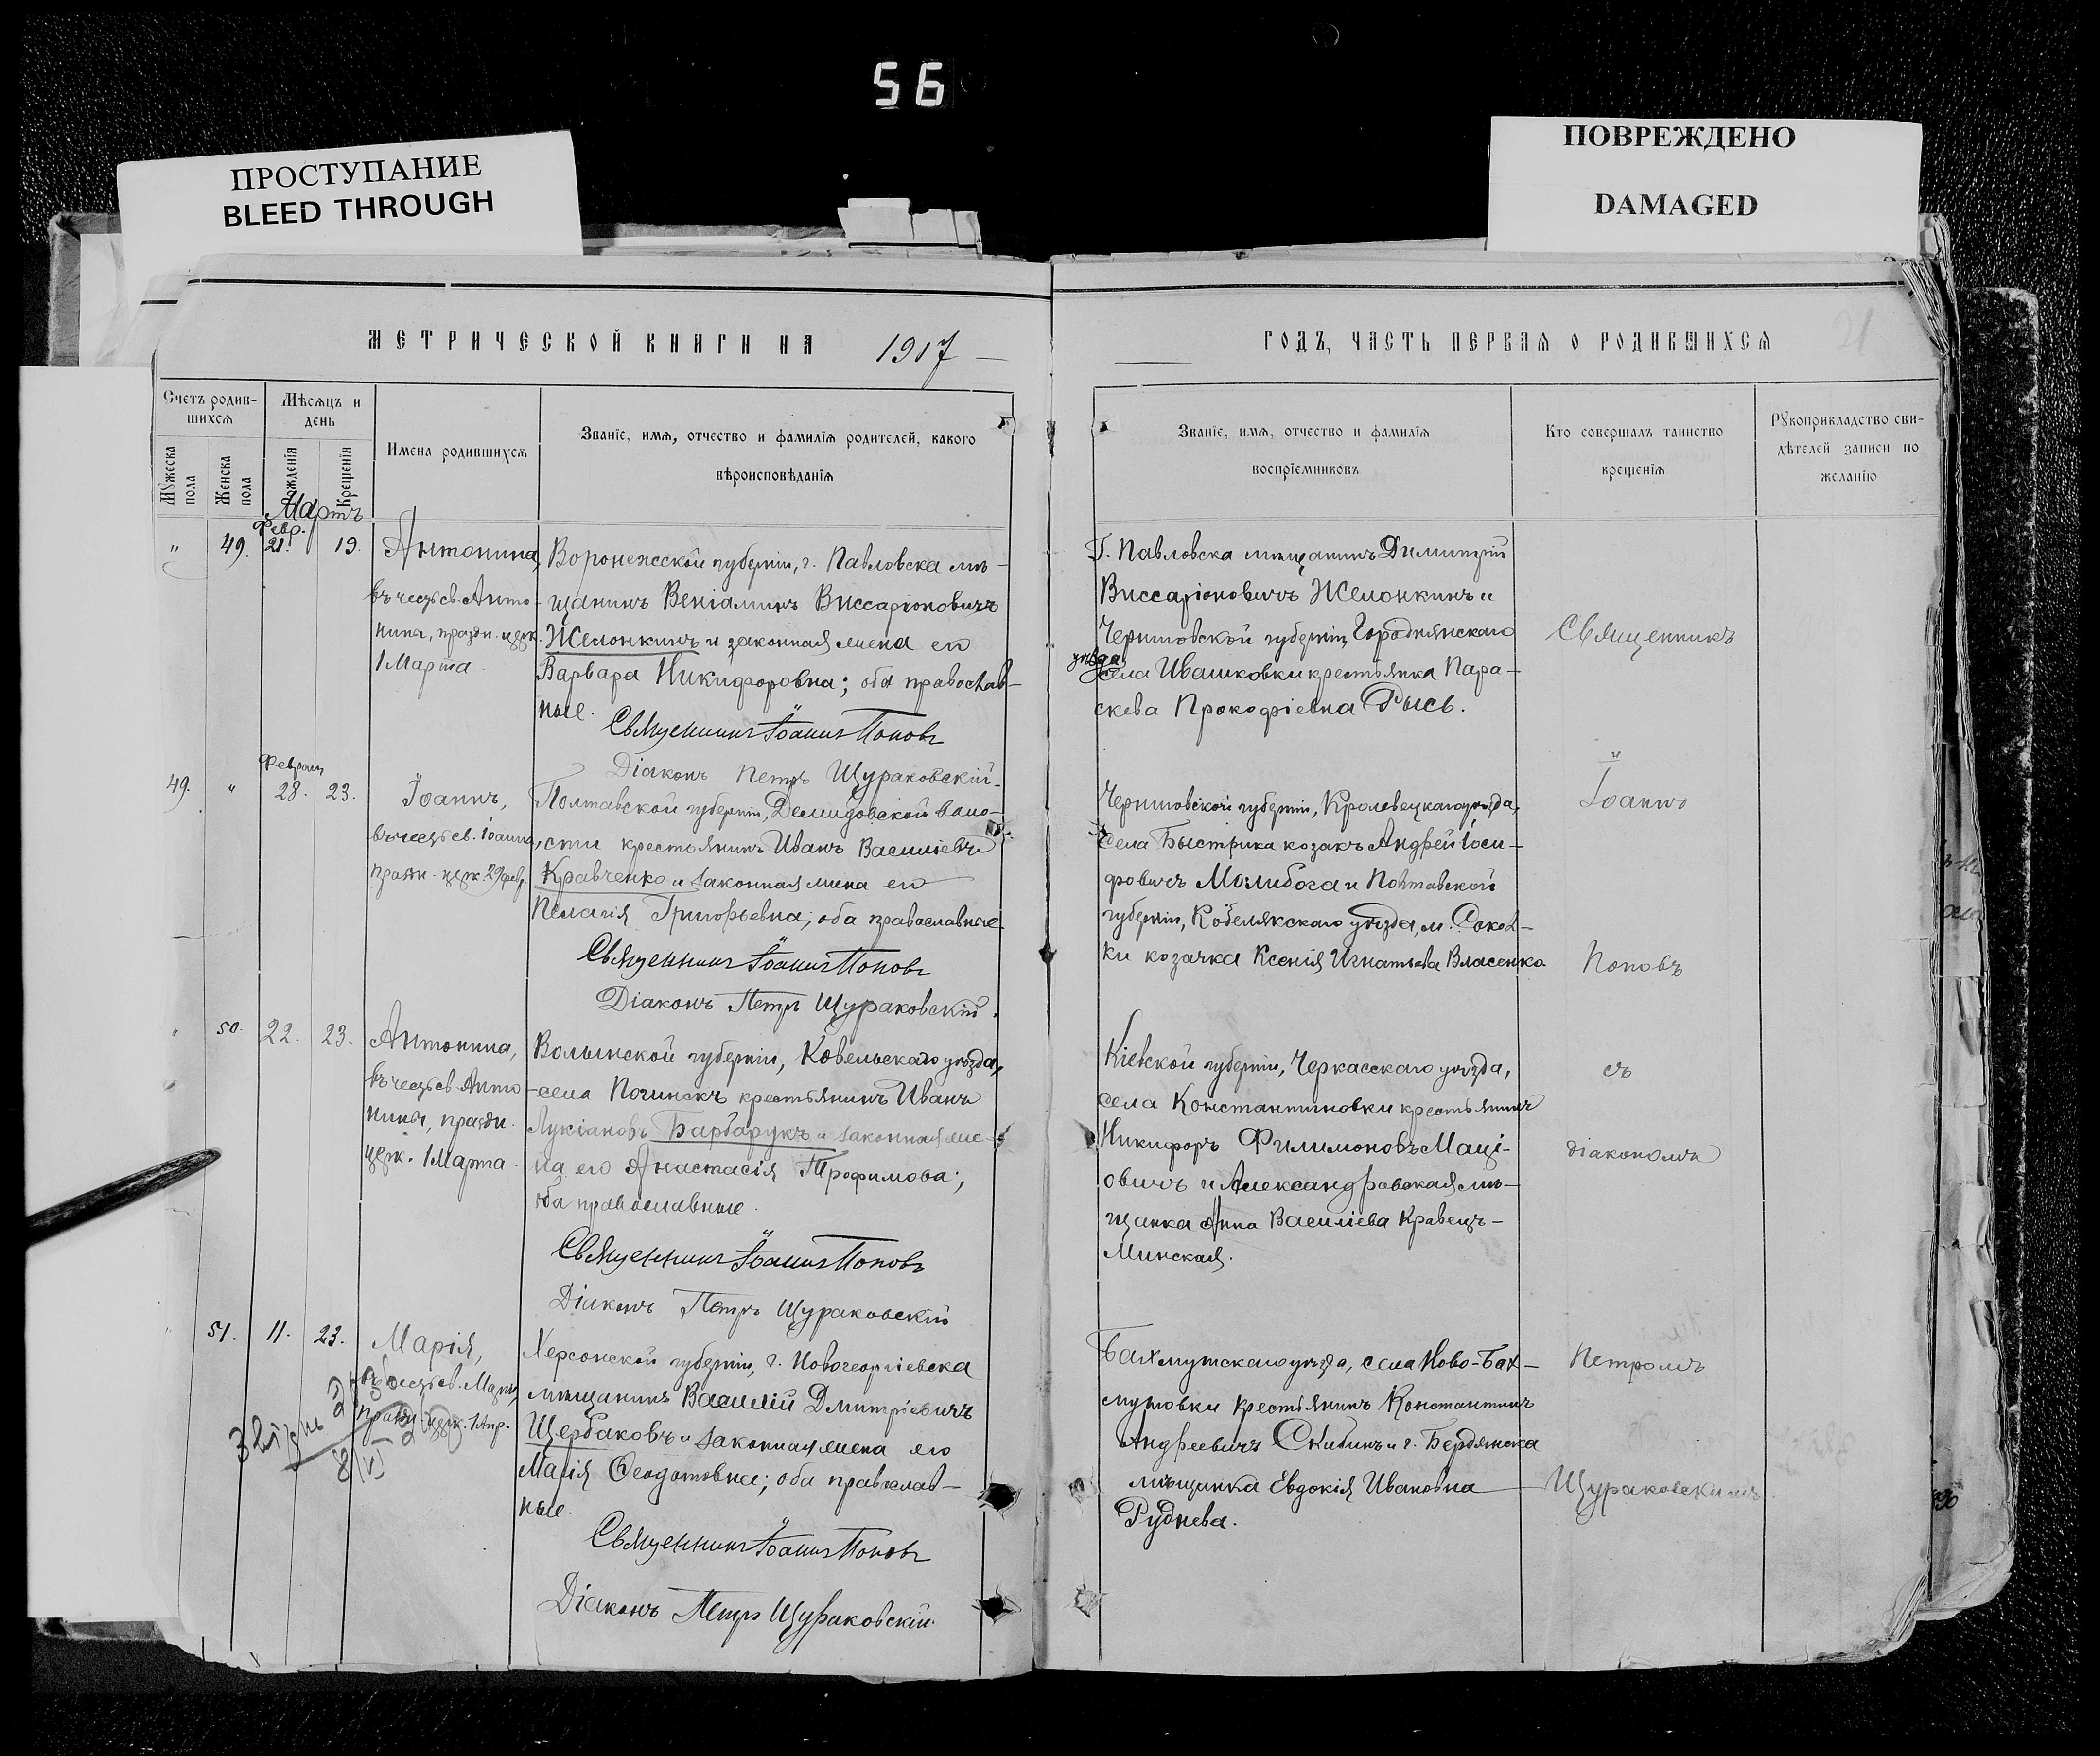 56
ПРОСТУПАНИЕ
BLEED THROUGH
ПОВРЕЖДЕНО
DAMAGED
МЕТРИЧЕСКОЙ КНИГИ НА 1917
Счетъ родив-
шихся
Мѣсяцъ и
день
Имена родившихся
Званіе, имя, отчество и фамилія родителей, какого
вѣроисповѣданія
Мужеска
пола
Женска
пола
Крещенія
Мартъ
Февр.
" 49. 21. 19.
Антонина,
въ честь св. Анто-
нины, праздн. церк.
1 Марта.
Воронежской губерніи, г. Павловска мѣ-
щанинъ Веніаминъ Виссаріоновичъ
Желонкинъ и законная жена его
Варвара Никифоровна; оба православ-
ные.
Священникъ Іоаннъ Поповъ
Діаконъ Петръ Щураковскій.
Февраля
49. " 28. 23.
Іоаннъ,
въ честь св. Іоанна,
праздн. церк. 29 февр.
Полтавской губерніи, Демидовской воло-
сти крестьянинъ Иванъ Василіевъ
Кравченко и законная жена его
Пелагія Григорьевна; оба православные.
Священникъ Іоаннъ Поповъ
Діаконъ Петръ Щураковскій.
" 50. 22. 23.
Антонина,
въ честь св. Анто-
нины, праздн.
церк. 1 Марта.
Волынской губерніи, Ковельскаго уѣзда,
села Починокъ крестьянинъ Иванъ
Лукіановъ Барбарукъ и законная же-
на его Анастасія Трофимова;
оба православные.
Священникъ Іоаннъ Поповъ
Діаконъ Петръ Щураковскій
51. 11. 23.
Марія,
въ честь св. Маріи,
праздн. церк. 1 Апр.
Херсонской губерніи, г. Новогеоргіевска
мѣщанинъ Василій Дмитріевичъ
Щербаковъ и законная жена его
Марія Ѳеодотовна; оба православ-
ные.
Священникъ Іоаннъ Поповъ
Діаконъ Петръ Щураковскій.
ГОДЪ, ЧАСТЬ ПЕРВАЯ О РОДИВШИХСЯ
21
Званіе, имя, отчество и фамилія
воспріемниковъ
Кто совершалъ таинство
крещенія
Рукоприкладство сви-
дѣтелей записи по
желанію
Г. Павловска мѣщанинъ Димитрій
Виссаріоновичъ Желонкинъ и
Черниговской губерніи, Городнянскаго
уѣзда
села Ивашковки крестьянка Пара-
скева Прокофіевна Рысь.
Черниговской губерніи, Кролевецкаго уѣзда,
села Быстрика козакъ Андрей Іоси-
фовичъ Молибога и Полтавской
губерніи, Кобелякскаго уѣзда, м. Сокол-
ки козачка Ксенія Игнатьева Власенко
Кіевской губерніи, Черкасскаго уѣзда,
села Константиновки крестьянинъ
Никифоръ Филимоновъ Маці-
овичъ и Александровская мѣ-
щанка Анна Василіева Кравецъ-
Минская.
Бахмутскаго уѣзда, села Ново-Бах-
мутовки крестьянинъ Константинъ
Андреевичъ Скибинъ и г. Бердянска
мѣщанка Евдокія Ивановна
Руднева.
Священникъ
Іоаннъ
Поповъ
съ
діакономъ
Петромъ
Щураковскимъ.